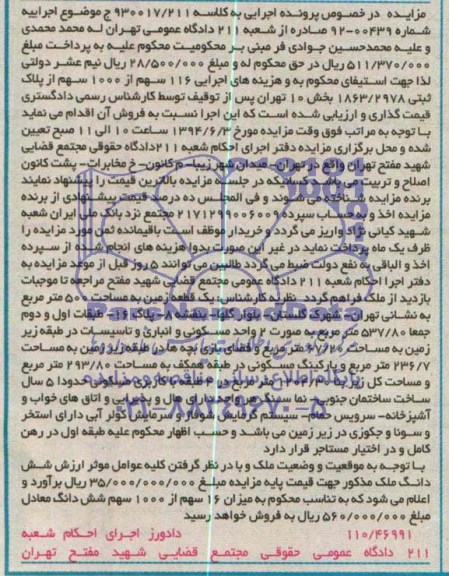 مزایـده در خصوص پرونده اجرایی به کلاسه ۹۳۰۰۱۷/۲۱۱ ج موضـوع اجراییه
شماره ۰۰۴۳۹-۹۲ صادره از شعبه ۲۱۱ دادگاه عمومی تهران له محمد محمدی
و علیـه محمدحسین جوادی فر مبنی بـر محکومیت محکوم علیـه به پرداخت مبلغ
۵۱۱/۳۷۰/۰۰۰ ریال در حق محکوم له و مبلغ ۲۸/۵۰۰/۰۰۰ ریال نیم عشر دولتی
لذا جهت استیفای محکوم به و هزینه های اجرایی ۱۱۶ سهم از ۱۰۰۰ سهم از پلاک
ثبتی ۱۸۶۳/۲۹۷۸ بخش ۱۰ تهران پس از توقیف توسط کارشناس رسمی دادگستری
قیمت گذاری و ارزیابی شده است که این اجرا نسبت به فروش آن اقدام می نماید
بـا توجه به مراتب فوق وقت مزایده مورخ ۱۳۹۴/۶/۳ ساعت ۱۰ الی ۱۱ صبح تعیین
شده و محل برگزاری مزایده دفتر اجرای احکام شعبه ۲۱۱دادگاه حقوقی مجتمع قضایی
شهید مفتح تهران واقع در تهران- میدان شهر زیبا- م کانون- خ مخابرات- پشت کانون
اصلاح و تربیت می باشد کسانیکه در جلسه مزایده بالاترین قیمت را پیشنهاد نمایند
برنده مزایده شناخته می شوند و فی المجلس ده درصد قیمت پیشنهادی از برنده
مزایده اخذ و به حساب سپرده ۲۱۷۱۲۹۹۰۰۶۰۰۹ مجتمع نزد بانک ملی ایران شعبه
شهید کیانی نژاد واریز می گردد و خریدار موظف است باقیمانده ثمن مورد مزایده را
ظرف یک ماه پرداخت نماید در غیر این صورت بدوا هزینه های انجام شده از سپرده
اخذ و الباقی به نفع دولت ضبط می گردد طالبین می توانند ۵ روز قبل از موعد مزایده به
دفتر اجرا احکام شعبه ۲۱۱ دادگاه عمومی مجتمع قضایی شهید مفتح مراجعه تا موجبات
بازدید از ملک فراهم گردد. نظریه کارشناس: یک قطعه زمین به مساحت ۵۰۰ متر مربع
به نشانی تهران- شهرک گلستان- بلوار گلها- بنفشه ۸- پلاک ۱۶- طبقات اول و دوم
جمعا ۵۳۷/۸۰ متر مربع به صورت ۲ واحد مسکونی و انباری و تاسیسات در طبقه زیر
زمین به مساحت ۶۷/۲۰ متر مربع و فضای بازی بچه ها در طبقه زیر زمین به مساحت
۲۳۶/۷ متر مربع و پارکینگ مسکونی در طبقه همکف به مساحت ۲۹۳/۸۰ متر مربع
ساخت ساختمان جنوبی- نما سنگی و واحد دارای هال و پذیرایی و اتاق های خواب و
آشپزخانه- سرویس حمام- سیستم گرمایش شوفاژ و سرمایش کولر آبی دارای استخر
و سونا و جکوزی در زیر زمین می باشـد و حسب اظهار محکوم علیه طبقه اول در رهن
کامل و در اختیار مستاجر قرار دارد
بـا توجـه به موقعیت و وضعیت ملک و با در نظر گرفتن کلیه عوامل موثر ارزش شش
دانـگ ملک مذکور جهت قیمت پایه مزایده مبلغـ ۳۵/۰۰۰/۰۰۰/۰۰۰ ریال برآورد و
اعلام می شود که به تناسب محکوم به میزان ۱۶ سهم از ۱۰۰۰ سهم شش دانگ معادل
مبلغ ۵۶۰/۰۰۰/۰۰۰ ریال به فروش خواهد رسید
۱۱۰/۴۶۹۹۱ دادورز اجرای احکـام شـعبه
۲۱۱ دادگاه عمومـی حقوقـی مجتمـع قضایـی شـهید مفتـح تهـران